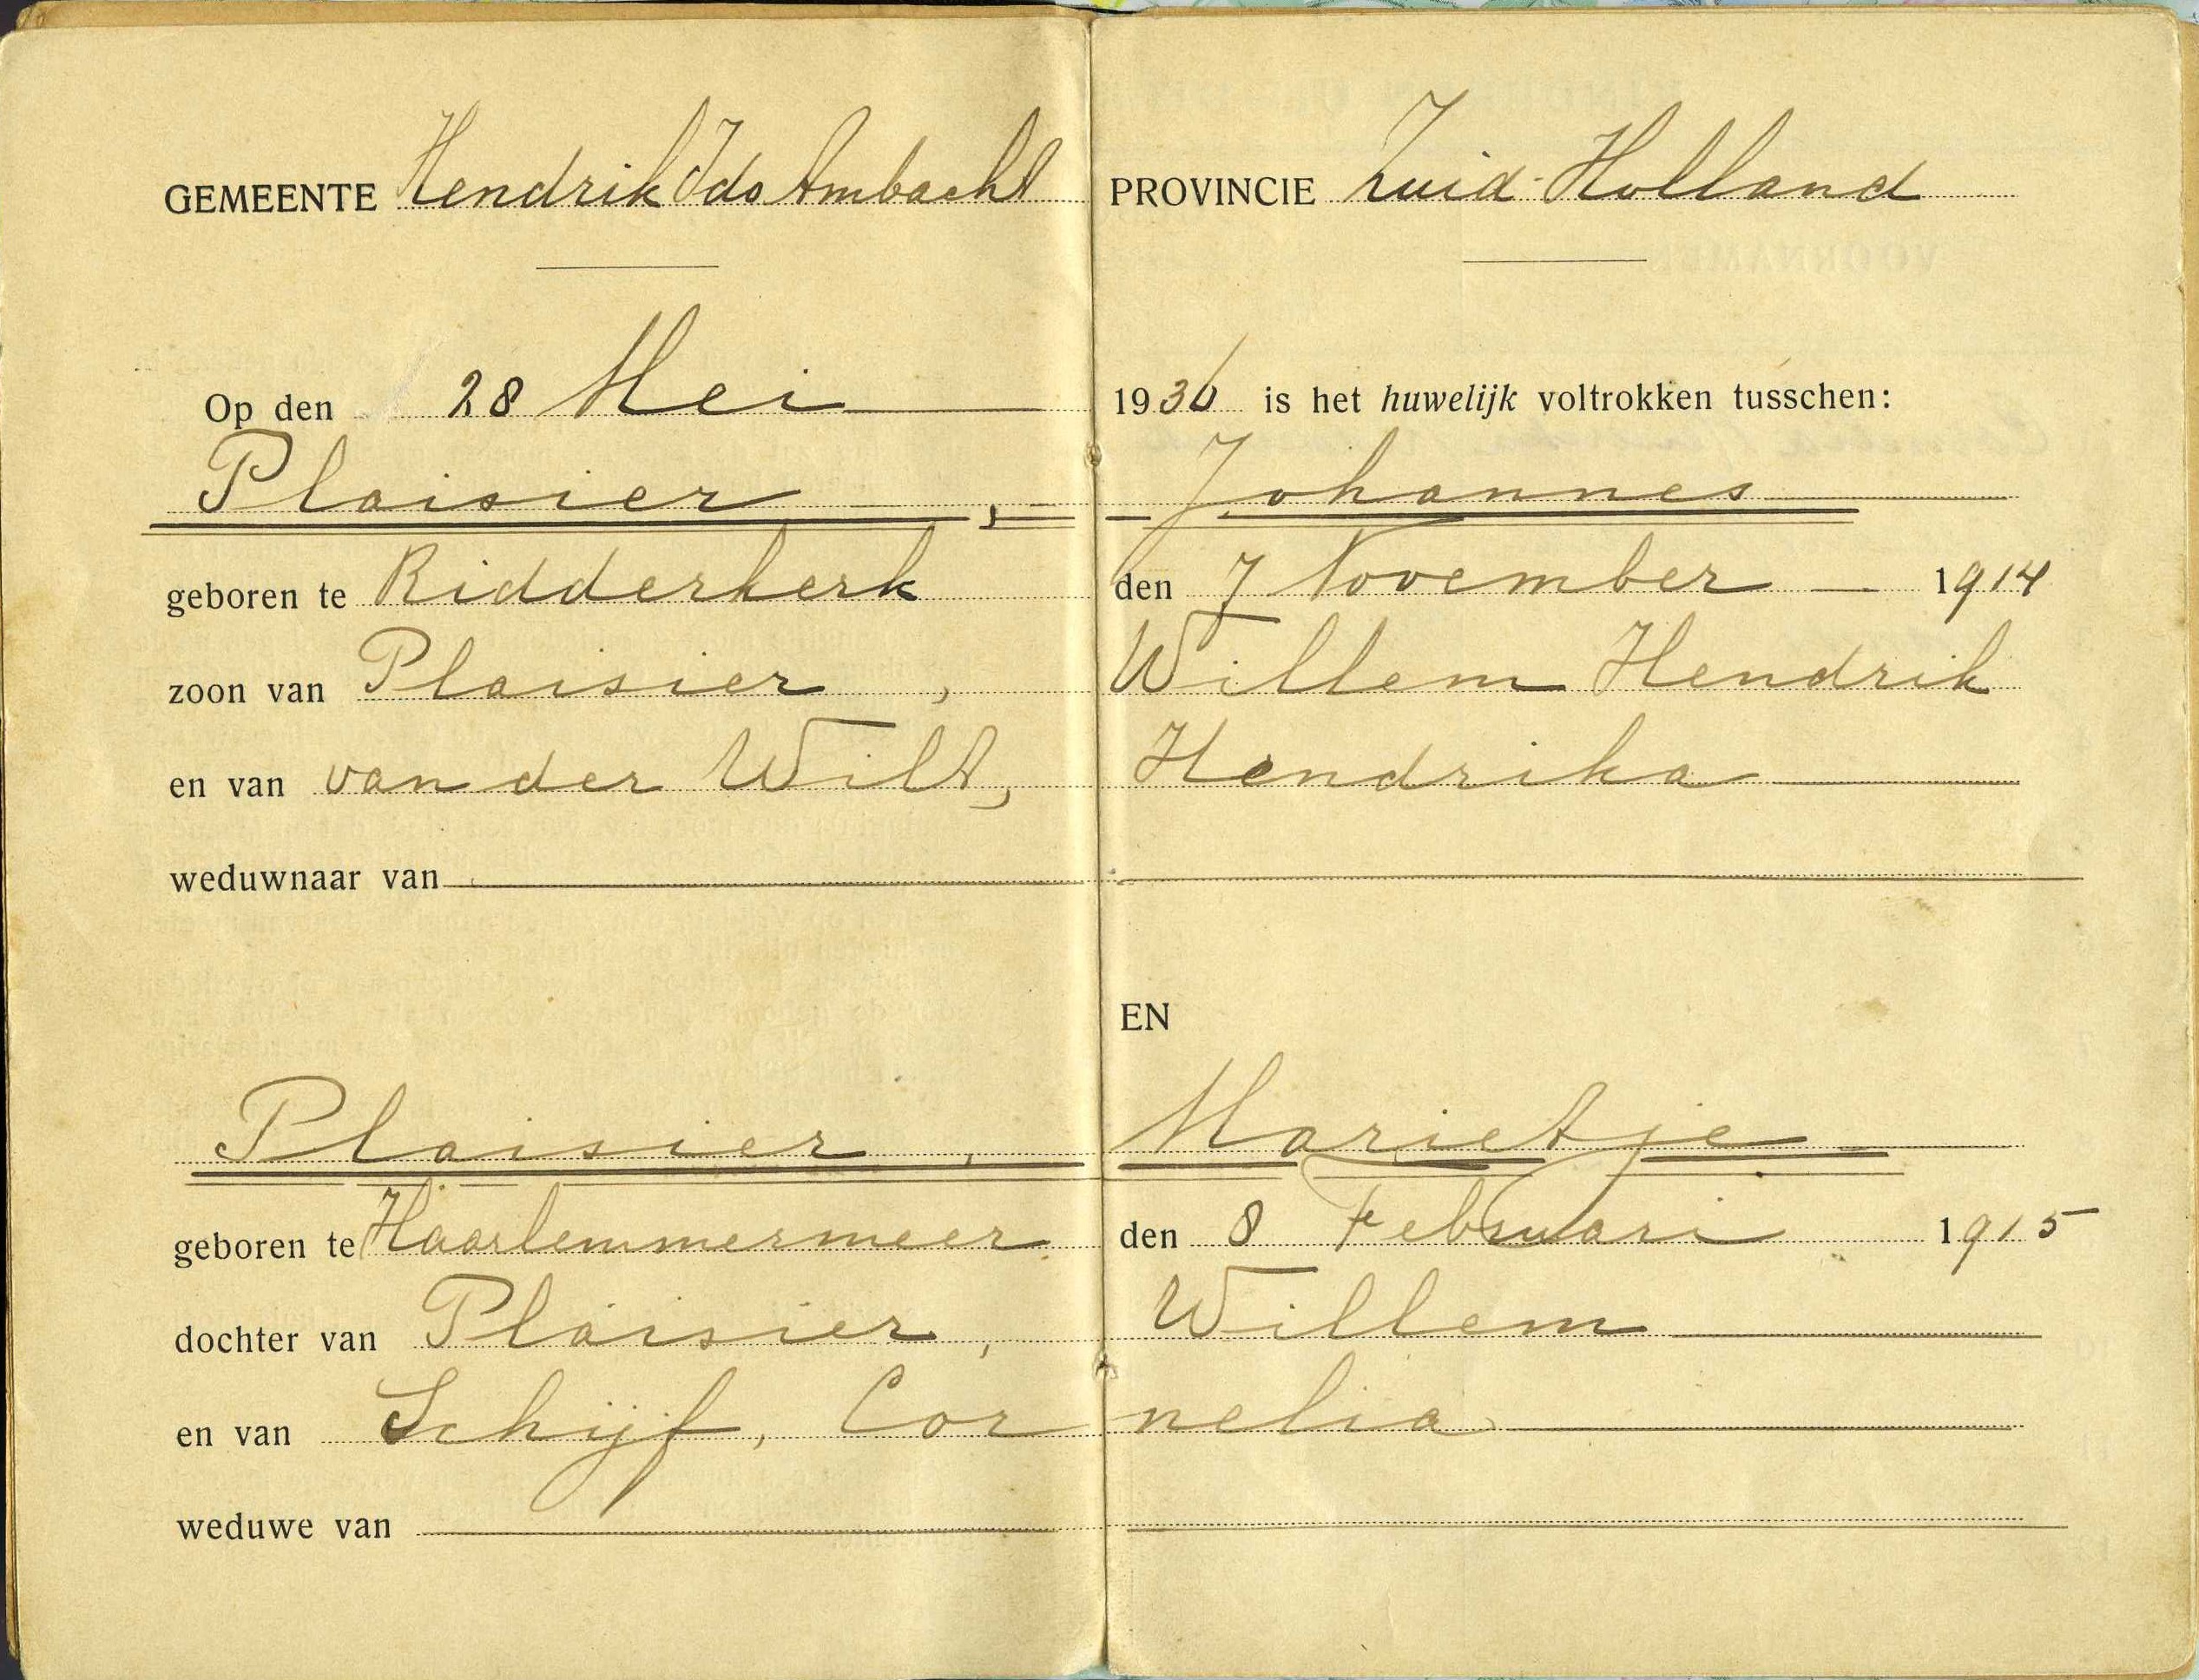 GEMEENTE Hendrik Ido Ambacht PROVINCIE Zuid-Holland
Op den 28 Mei 1936 is het huwelijk voltrokken tusschen:
Plaisier, Johannes
geboren te Ridderkerk den 7 November 1914
zoon van Plaisier, Willem Hendrik
en van van der Wilt, Hendrika
weduwnaar van
EN
Plaisier, Marietje
geboren te Haarlemmermeer den 8 Februari 1915
dochter van Plaisier, Willem
en van Schijf, Cornelia
weduwe van